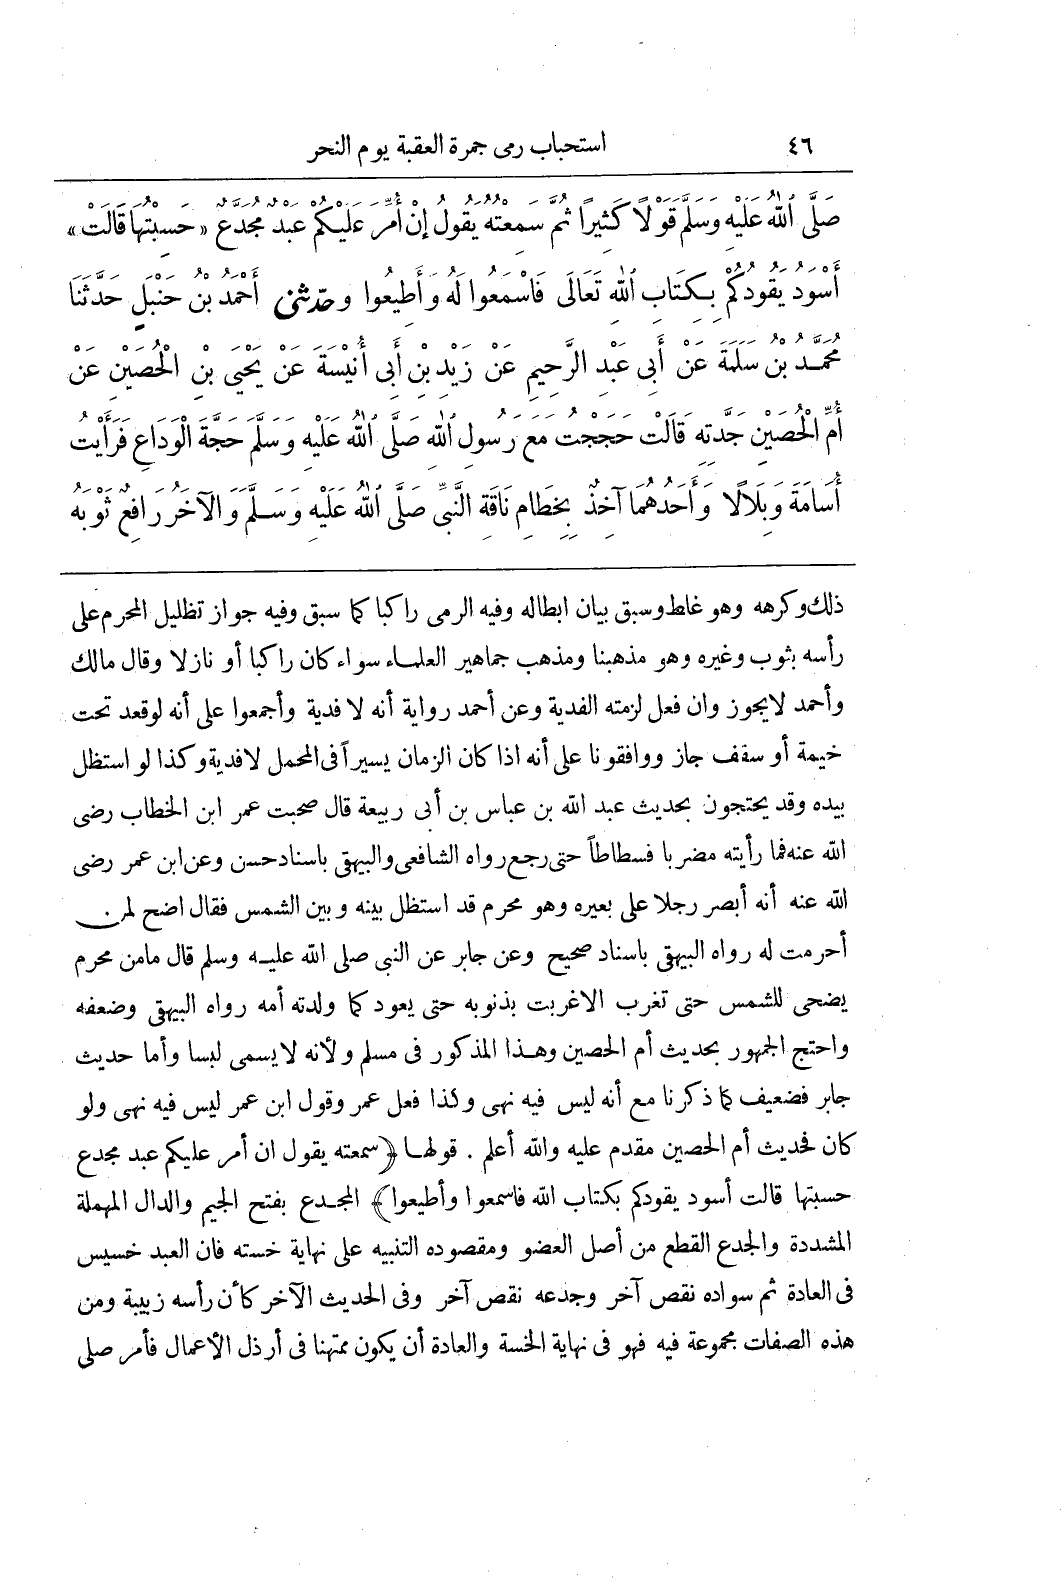 ٤٦ استحباب رمى جمرة العقبة يوم النحر
صَلَّى ٱللهُ عَلَيْهِ وَسَلَّمَ قَوْلًا كَثِيرًا ثُمَّ سَمِعْتُهُ يَقُولُ إِنْ أُمِّرَ عَلَيْكُمْ عَبْدٌ مُجَدَّعٌ «حَسِبْتُهَا قَالَتْ»
أَسْوَدُ يَقُودُكُمْ بِكِتَابِ ٱللهِ تَعَالَى فَاسْمَعُوا لَهُ وَأَطِيعُوا وحدّثنى أَحْمَدُ بْنُ حَنْبَلٍ حَدَّثَنَا
مُحَمَّدُ بْنُ سَلَمَةَ عَنْ أَبِى عَبْدِ الرَّحِيمِ عَنْ زَيْدِ بْنِ أَبِى أُنَيْسَةَ عَنْ يَحْيَى بْنِ الْحُصَيْنِ عَنْ
أُمِّ الْحُصَيْنِ جَدَّتِهِ قَالَتْ حَجَجْتُ مَعَ رَسُولِ ٱللهِ صَلَّى ٱللهُ عَلَيْهِ وَسَلَّمَ حَجَّةَ الْوَدَاعِ فَرَأَيْتُ
أُسَامَةَ وَبِلَالًا وَأَحَدُهُمَا آخِذٌ بِخِطَامِ نَاقَةِ النَّبِىِّ صَلَّى ٱللهُ عَلَيْهِ وَسَلَّمَ وَالْآخَرُ رَافِعٌ ثَوْبَهُ
ذلك وكرهه وهو غلط وسبق بيان ابطاله وفيه الرمى راكبا كما سبق وفيه جواز تظليل المحرم على
رأسه بثوب وغيره وهو مذهبنا ومذهب جماهير العلماء سواء كان راكبا أو نازلا وقال مالك
وأحمد لايجوز وان فعل لزمته الفدية وعن أحمد رواية أنه لا فدية وأجمعوا على أنه لوقعد تحت
خيمة أو سقف جاز ووافقونا على أنه اذا كان الزمان يسيراً فى المحمل لافدية وكذا لو استظل
بيده وقد يحتجون بحديث عبد الله بن عباس بن أبى ربيعة قال صحبت عمر ابن الخطاب رضى
الله عنه فما رأيته مضربا فسطاطاً حتى رجع رواه الشافعى والبيهقى باسناد حسن وعن ابن عمر رضى
الله عنه أنه أبصر رجلا على بعيره وهو محرم قد استظل بينه وبين الشمس فقال اضح لمن
أحرمت له رواه البيهقى باسناد صحيح وعن جابر عن النبى صلى الله عليه وسلم قال مامن محرم
يضحى للشمس حتى تغرب الاغربت بذنوبه حتى يعود كما ولدته أمه رواه البيهقى وضعفه
واحتج الجمهور بحديث أم الحصين وهذا المذكور فى مسلم ولأنه لايسمى لبسا وأما حديث
جابر فضعيف كما ذكرنا مع أنه ليس فيه نهى وكذا فعل عمر وقول ابن عمر ليس فيه نهى ولو
كان فحديث أم الحصين مقدم عليه والله أعلم . قولها ﴿سمعته يقول ان أمر عليكم عبد مجدع
حسبتها قالت أسود يقودكم بكتاب الله فاسمعوا وأطيعوا﴾ المجدع بفتح الجيم والدال المهملة
المشددة والجدع القطع من أصل العضو ومقصوده التنبيه على نهاية خسته فان العبد خسيس
فى العادة ثم سواده نقص آخر وجدعه نقص آخر وفى الحديث الآخر كأن رأسه زبيبة ومن
هذه الصفات مجموعة فيه فهو فى نهاية الخسة والعادة أن يكون ممتهنا فى أرذل الأعمال فأمر صلى